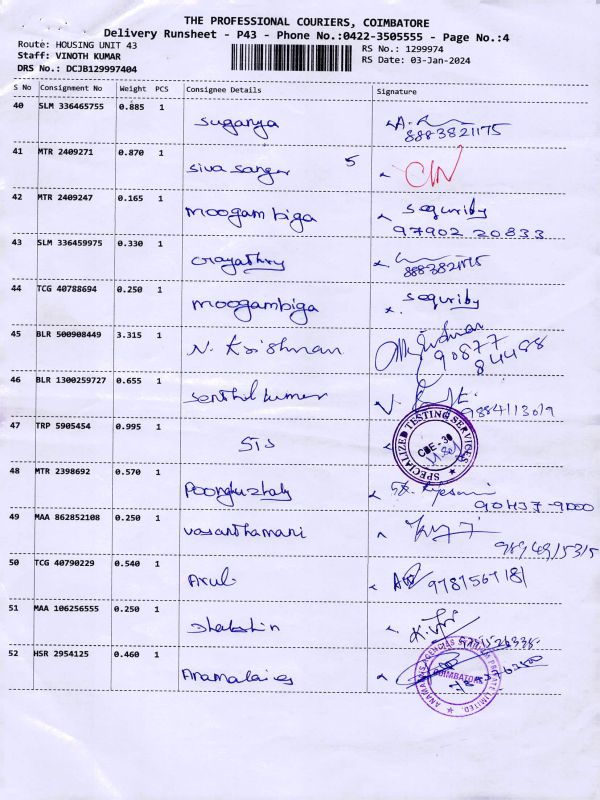 THE PROFESSIONAL COURIERS, COIMBATORE
Delivery Runsheet - P43 - Phone No.:0422-3505555 - Page No.:4
Route: HOUSING UNIT 43 RS No.: 1299974
Staff: VINOTH KUMAR RS Date: 03-Jan-2024
DRS No.: DCJB129997404
S No Consignment No Weight PCS Consignee Details Signature
40 SLM 336465755 0.885 1
suganya 8883821175
41 MTR 2409271 0.870 1 5
siva sanger CW
42 MTR 2409247 0.165 1 sequriby
moogambiga 97902 20833
43 SLM 336459975 0.330 1
Gayathry 8883821175
44 TCG 40788694 0.250 1 sequriby
moogambiga
45 BLR 500908449 3.315 1
N. Krishnan 90877
84488
46 BLR 1300259727 0.655 1
Senthil kumer
47 TRP 5905454 0.995 1 SPECIALIZED TESTING SERVICES
STS CBE - 30
48 MTR 2398692 0.570 1
Poonguzhaly
49 MAA 862852108 0.250 1
vasanthamani
50 TCG 40790229 0.540 1
Arul
51 MAA 106256555 0.250 1
52 HSR 2954125 0.460 1
COIMBATORE